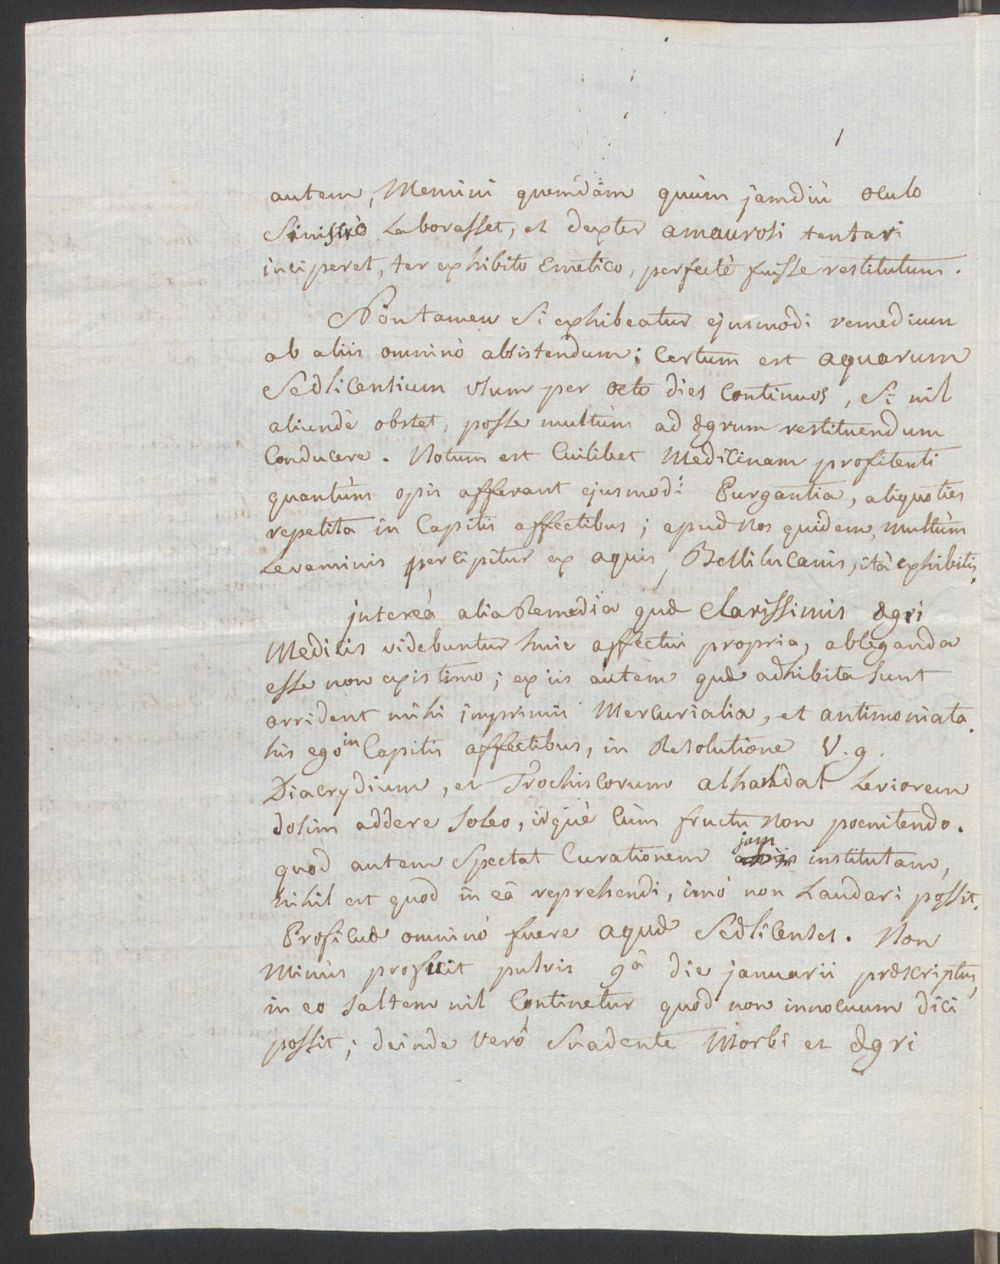 autem, Memini quemdàm quùm jamdiù oculo
Sinistrò Laborasset, et dexter amaurosi tentari
inciperet, ter exhibito Emetico, perfectè fuisse restitutum.
Non tamen Si exhibeatur ejusmodi remedium
ab aliis omninò abstinendum; Certum est aquarum
Sedlicensium Usum per octo dies Continuos, Si nil
aliundè obstet, posse multùm ad ægrum restituendum
Conducere. Notum est Cuilibet Medicinam profitenti
quantùm opis afferant ejusmodi Purgantia, aliquoties
repetita in Capitis affectibus; apud Nos quidem, Multùm
Levaminis percipitur ex aquis Bellilucanis, ità exhibitis.
intereà alia Remedia quæ Clarissimis ægri
Medicis videbuntur huic affectui propria, ableganda
esse non existimo; ex iis autem quæ adhibita sunt
arrident mihi imprimis Mercurialia, et antimoniata.
his ego in Capitis affectibus, in Resolutione V. g.
Diacrydium, et Trochiscorum alhandal Leviorem
dosim addere Soleo, idquè Cùm fructu Non poenitendo.
quod autem Spectat Curationem jam institutam,
nihil est quod in eâ reprehendi, imò non Laudari possit.
Proficuæ omninò fuere aquæ Sedlicenses. Non
Minùs proficit pulvis 9â die januarii præscriptus,
in eo Saltem nil Continetur quod non innocuum dici
possit; deinde Verò Suadente Morbi et ægri